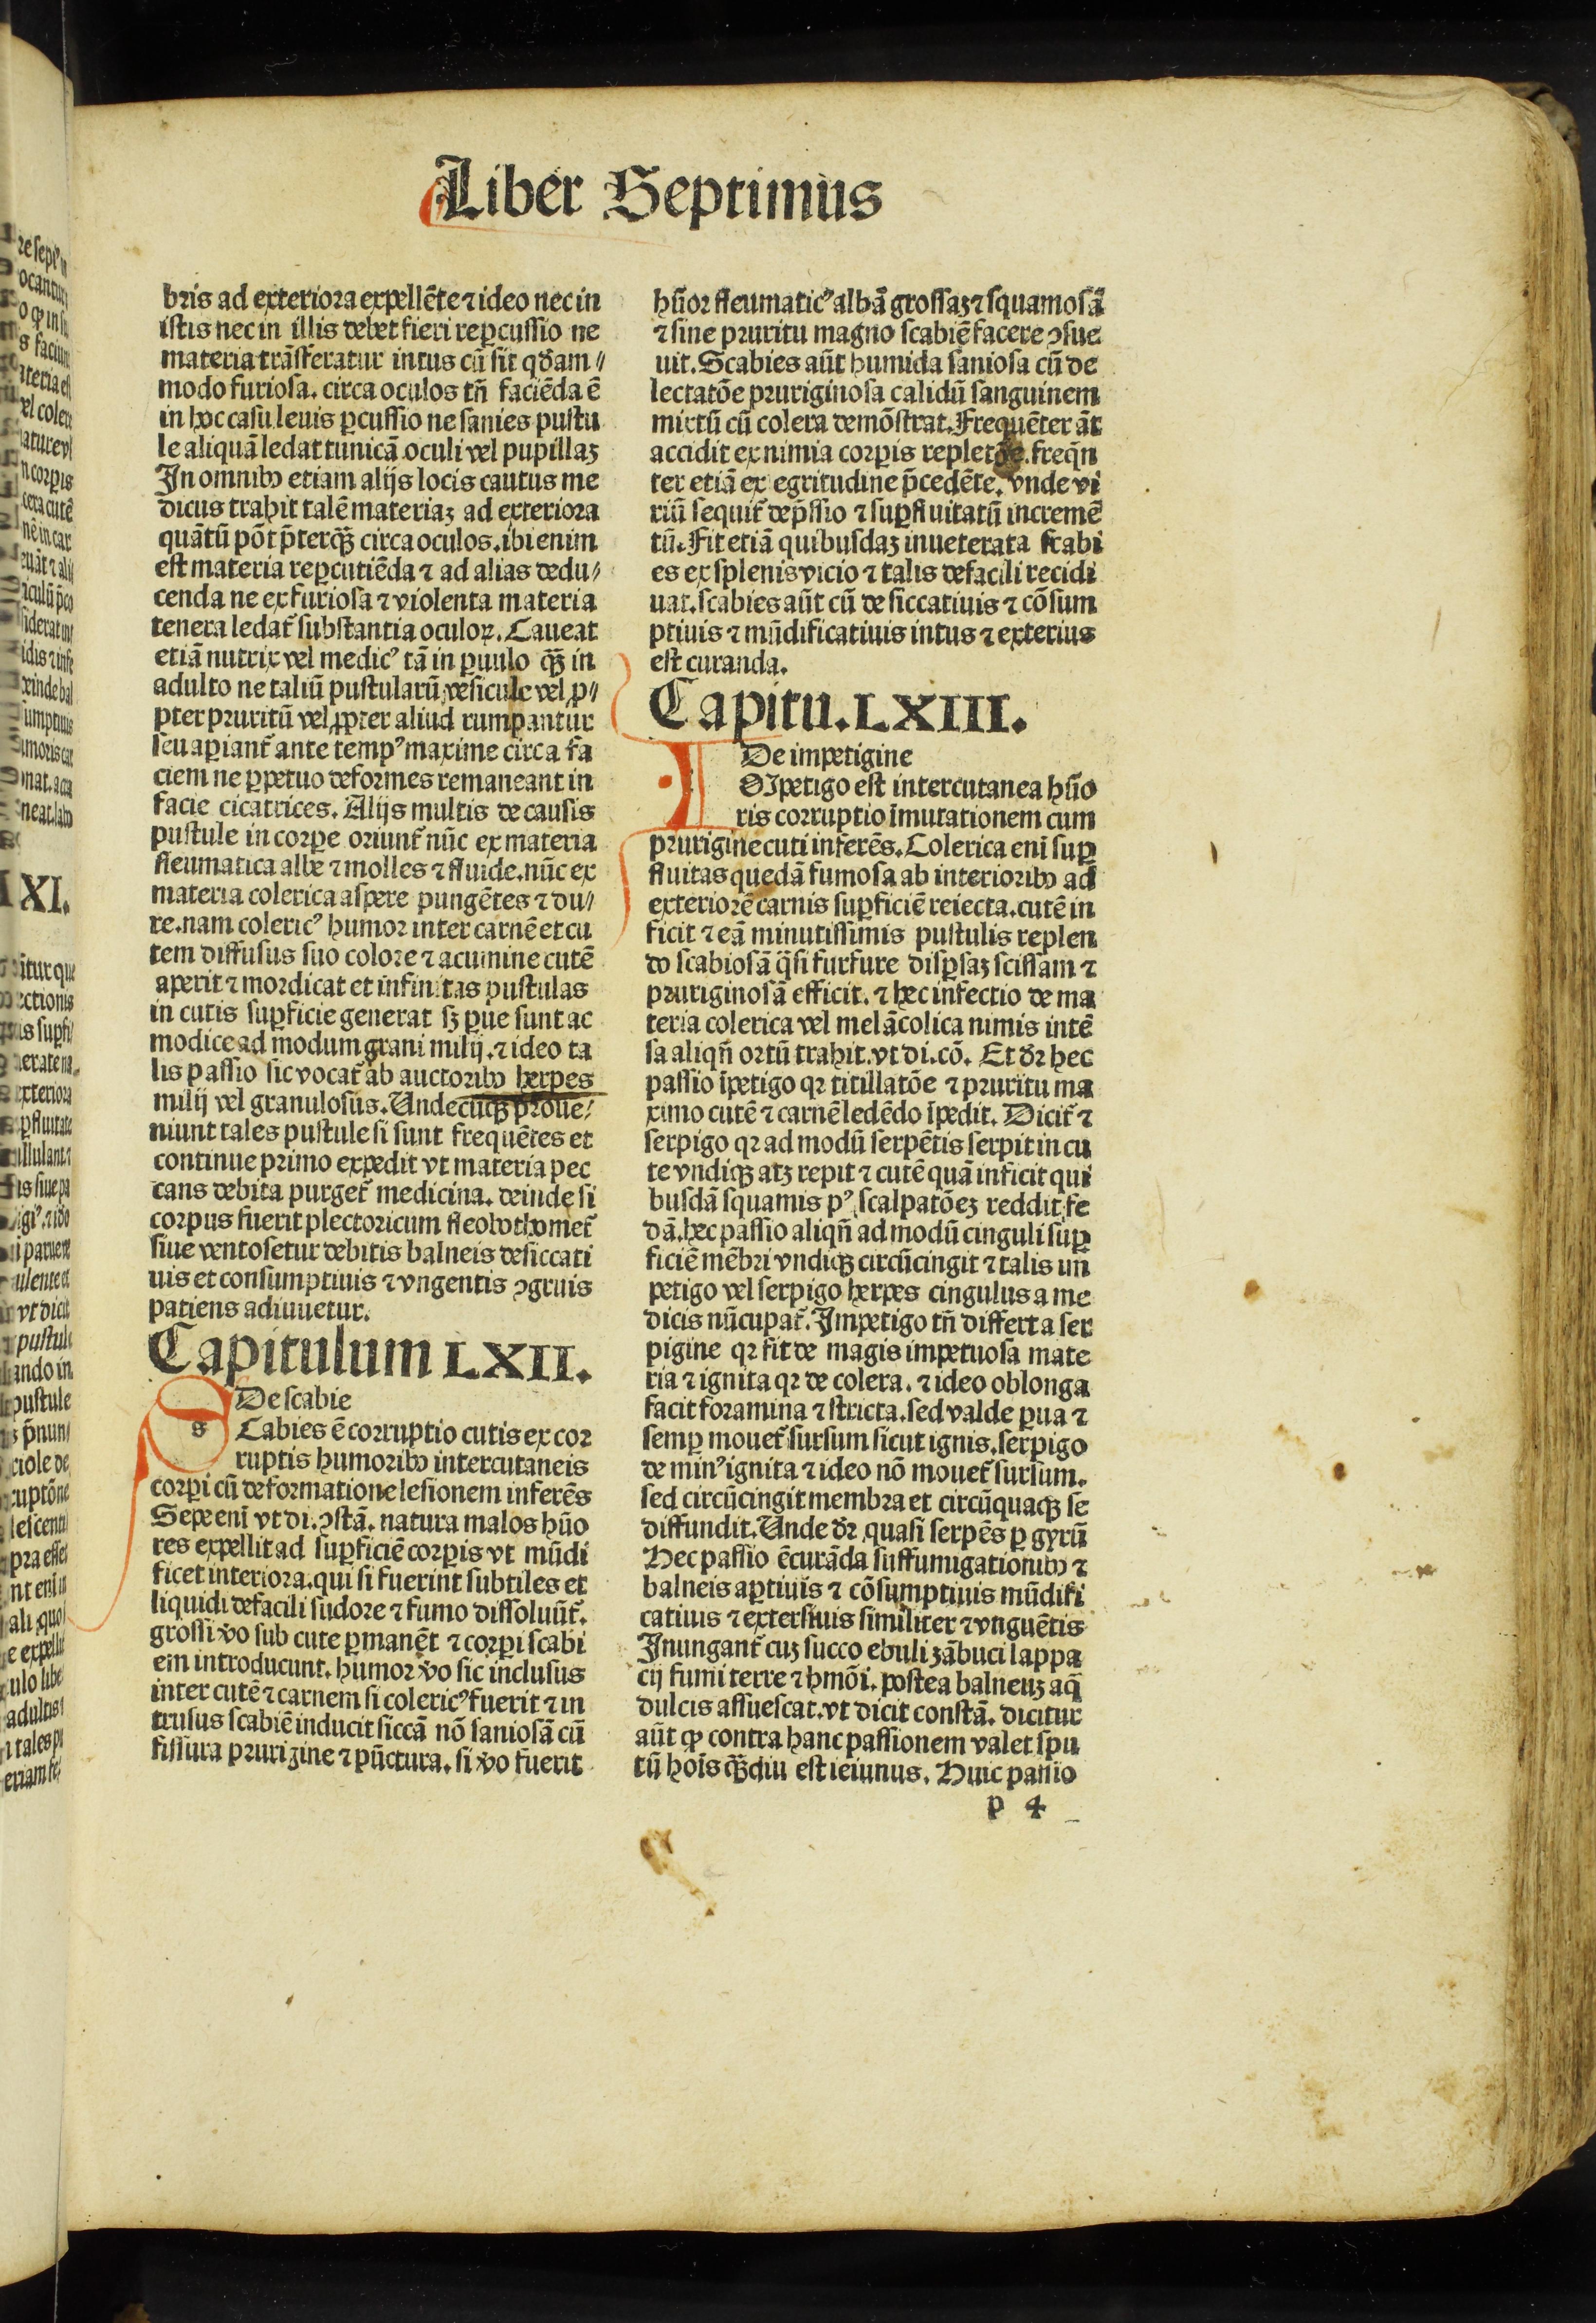 Liber Septimus
bris ad exteriora expellēte ⁊ ideo nec in
istis nec in illis debet fieri reꝑcussio ne
materia trāsferatur intus cū sit qᷓdam⸗
modo furiosa. circa oculos tn̄ faciēda ē
in hoc casu leuis ꝑcussio ne sanies pustu
le aliquā ledat tunicā oculi vel pupillaꝫ
In omnibꝰ etiam alijs locis cautus me
dicus trahit talē materiaꝫ ad exteriora
quātū pōt p̄terqꝫ̄ circa oculos. ibi enim
est materia reꝑcutiēda ⁊ ad alias dedu⸗
cenda ne ex furiosa ⁊ violenta materia
tenera ledat᷑ substantia oculoꝝ. Caueat
etiā nutrix vel medicꝰ tā in ꝑuulo qꝫ̄ in
adulto ne taliū pustularū vesicule vel ꝓ⸗
pter pruritū vel ꝓpter aliud rumpantur
seu aꝑiant᷑ ante tempꝰ maxime circa fa
ciem ne ꝑpetuo deformes remaneant in
facie cicatrices. Alijs multis de causis
pustule in corꝑe oriunt᷑ nūc ex materia
fleumatica albe ⁊ molles ⁊ fluide. nūc ex
materia colerica aspere pungētes ⁊ du⸗
re. nam colericꝰ humor inter carnē et cu
tem diffusus suo colore ⁊ acumine cutē
aperit ⁊ mordicat et infinitas pustulas
in cutis suꝑficie generat sꝫ ꝑue sunt ac
modice ad modum grani milij. ⁊ ideo ta
lis passio sic vocat᷑ ab auctoribꝰ herpes
milij vel granulosus. Undecūqꝫ proue⸗
niunt tales pustule si sunt frequētes et
continue primo expedit vt materia pec
cans debita purget᷑ medicina. deinde si
corpus fuerit plectoricum fleobothomet᷑
siue ventosetur debitis balneis desiccati
uis et consumptiuis ⁊ vngentis ꝯgruis
patiens adiuuetur.
Capitulum LXII.
De scabie
s Cabies ē corruptio cutis ex cor
ruptis humoribꝰ intercutaneis
corꝑi cū deformatione lesionem inferēs
Sepe eni vt di. ꝯstā. natura malos hūo
res expellit ad suꝑficiē corꝑis vt mūdi
ficet interiora. qui si fuerint subtiles et
liquidi defacili sudore ⁊ fumo dissoluūt᷑.
grossi ꝟo sub cute ꝑmanēt ⁊ corꝑi scabi
em introducunt. humor ꝟo sic inclusus
inter cutē ⁊ carnem si colericꝰ fuerit ⁊ in
trusus scabiē inducit siccā nō saniosā cū
fissura prurigine ⁊ pūctura. si ꝟo fuerit
hūor fleumaticꝰ albā grossaꝫ ⁊ squamosā
⁊ sine pruritu magno scabiē facere ꝯsue
uit. Scabies aūt humida saniosa cū de
lectatōe pruriginosa calidū sanguinem
mixtū cū colera demōstrat. Frequēter āt
accidit ex nimia corꝑis repletōe. freqn̄
ter etiā ex egritudine p̄cedēte. vnde vi
riū sequit᷑ dep̄ssio ⁊ suꝑfluitatū incremē
tū. Fit etiā quibusdaꝫ inueterata scabi
es ex splenis vicio ⁊ talis defacili recidi
uat. scabies aūt cū desiccatiuis ⁊ cōsum
ptiuis ⁊ mūdificatiuis intus ⁊ exterius
est curanda.
Capitu. LXIII.
De impetigine
I Mpetigo est intercutanea hūo
ris corruptio imutationem cum
prurigine cuti inferēs. Colerica eni suꝑ
fluitas quedā fumosa ab interioribꝰ ad
exteriorē carnis suꝑficiē reiecta. cutē in
ficit ⁊ eā minutissimis pustulis replen
do scabiosā q̈si furfure disꝑsaꝫ scissam ⁊
pruriginosā efficit. ⁊ hec infectio de ma
teria colerica vel melācolica nimis intē
sa aliqn̄ ortū trahit. vt di. cō. Et dr̄ hec
passio īpetigo qꝛ titillatōe ⁊ pruritu ma
ximo cutē ⁊ carnē ledēdo īpedit. Dicit᷑ ⁊
serpigo qꝛ ad modū serpētis serpit in cu
te vndiqꝫ atꝫ repit ⁊ cutē quā inficit qui
busdā squamis pꝰ scalpatōeꝫ reddit fe
dā. hec passio aliqn̄ ad modū cinguli suꝑ
ficiē mēbri vndiqꝫ circūcingit ⁊ talis im
petigo vel serpigo herpes cingulus a me
dicis nūcupat᷑. Impetigo tn̄ differt a ser
pigine qꝛ fit de magis impetuosa mate
ria ⁊ ignita qꝛ de colera. ⁊ ideo oblonga
facit foramina ⁊ stricta. sed valde ꝑua ⁊
semꝑ mouet᷑ sursum sicut ignis. serpigo
de minꝰ ignita ⁊ ideo nō mouet᷑ sursum.
sed circūcingit membra et circūquaqꝫ se
diffundit. Unde dr̄ quasi serpēs ꝑ gyrū
Hec passio ē curāda suffumigationibꝰ ⁊
balneis aꝑtiuis ⁊ cōsumptiuis mūdifi
catiuis ⁊ extersiuis similiter ⁊ vnguētis
Inungant᷑ cuꝫ succo ebuli zābuci lappa
cij fumi terre ⁊ hmōi. postea balneuꝫ aq̄
dulcis assuescat. vt dicit constā. dicitur
aūt ꝙ contra hanc passionem valet spu
tū hois̄ qꝫ̄diu est ieiunus. Huic passio
p 4